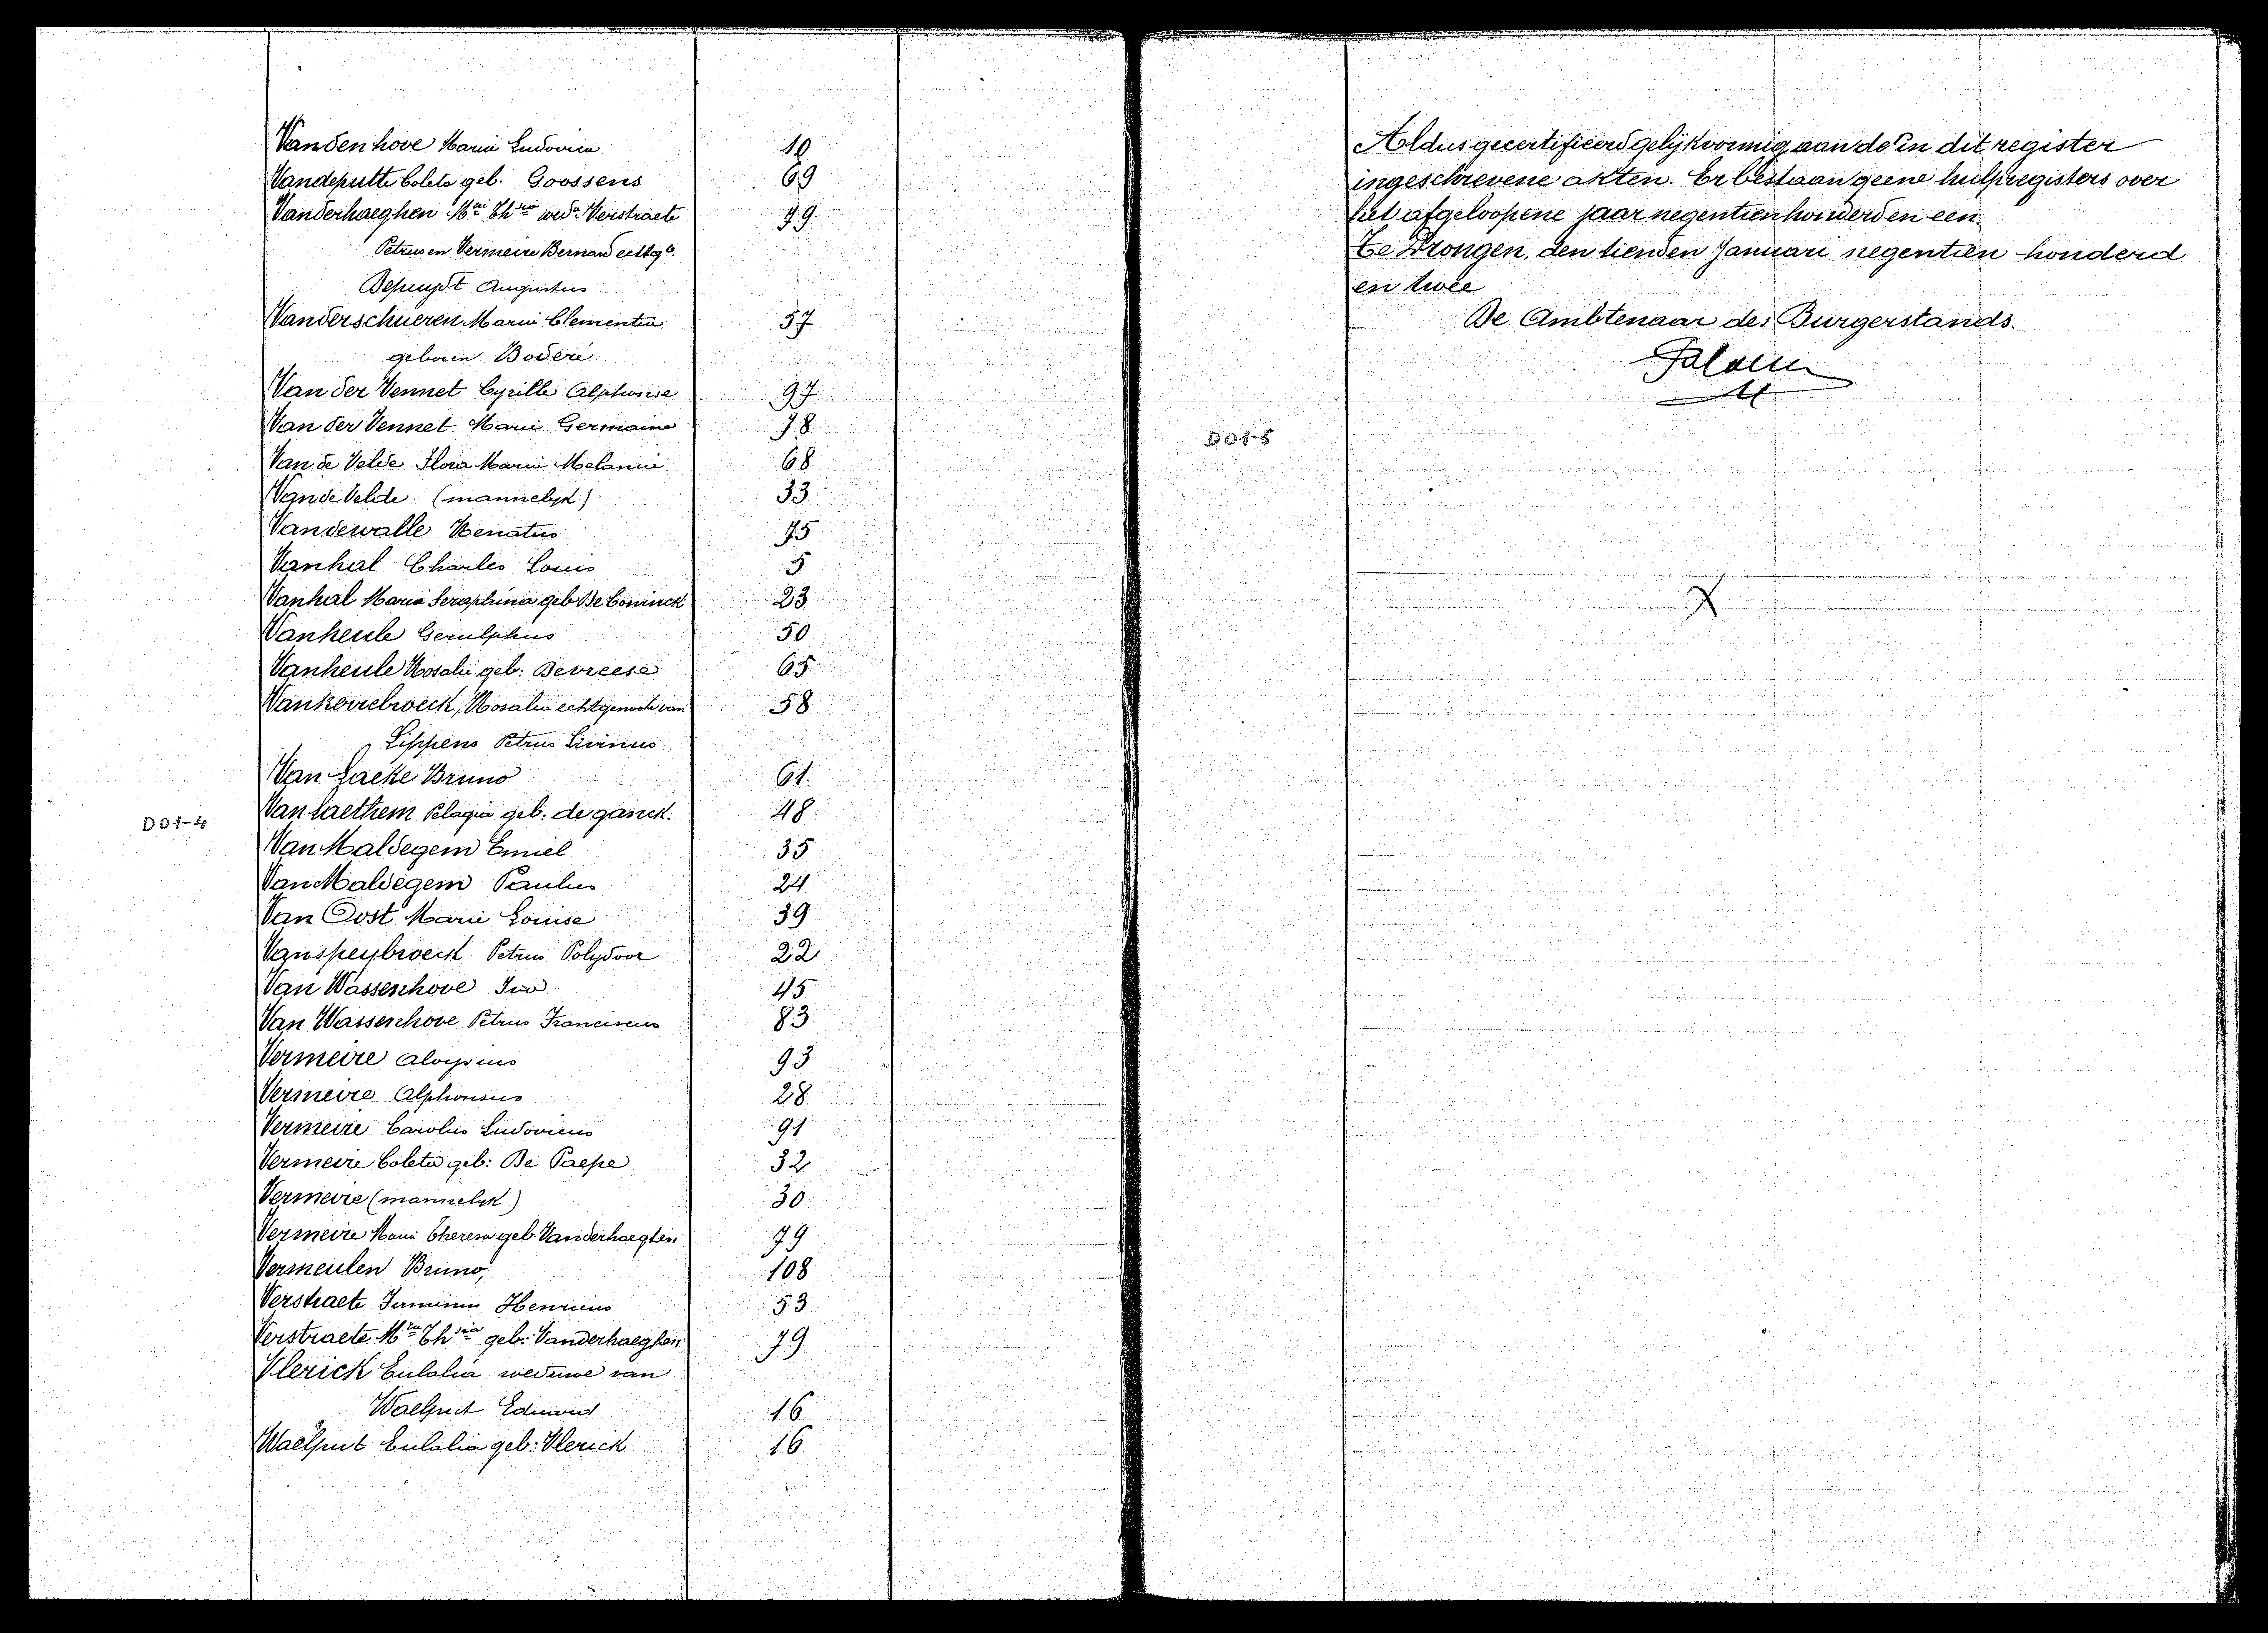 Vandenhove Marie Ludovica 10
Vandeputte Coleta geb. Goossens 69
Vanderhaeghen Mie Thsia wede Verstraete 79
Petrus en Vermeire Bernard echtge
Depuydt Augustus
Vanderschueren Marie Clementia 57
geboren Boderé
Van der Vennet Cyrille Alphonse 97
Van der Vennet Marie Germaine 78
Van de Velde Flora Marie Melanie 68
Van de Velde (mannelyk) 33
Vandewalle Renatus 75
Vanhal Charles Louis 5
Vanhal Maria Seraphina geb De Coninck 23
Vanheule Gerulphus 50
Vanheule Rosalie geb: Devreese 65
Vankerrebroeck, Rosalia echtgenoote van 58
Lippens Petrus Livinus
Van Laeke Bruno 61
Van Laethem Pelagia geb: de ganck. 48
D01-4
Van Maldegem Emiel 35
Van Maldegem Paulus 24
Van Oost Marie Louise 39
Vanspeybroeck Petrus Polydoor 22
Van Wassenhove Ivo 45
Van Wassenhove Petrus Franciscus 83
Vermeire Aloysius 93
Vermeire Alphonsus 28
Vermeire Carolus Ludovicus 91
Vermeire Coleta geb: De Paepe 32
Vermeire (mannelyk) 30
Vermeire Marie Theresia geb. Vanderhaeghen 79
Vermeulen Bruno, 108
Verstraete Firminus Henricus 53
Verstraete Mie Thsia geb: Vanderhaeghen 79
Vlerick Eulalia weduwe van
Waelput Eduard 16
Waelput Eulalia geb: Vlerick 16
Aldus gecertifieerd gelijkvormig aan de in dit register
ingeschrevene akten. Er bestaan geene hulpregisters over
het afgeloopene jaar negentien honderd en een.
Te Drongen, den tienden Januari negentien honderd
en twee
De Ambtenaar des Burgerstands.
D01-5